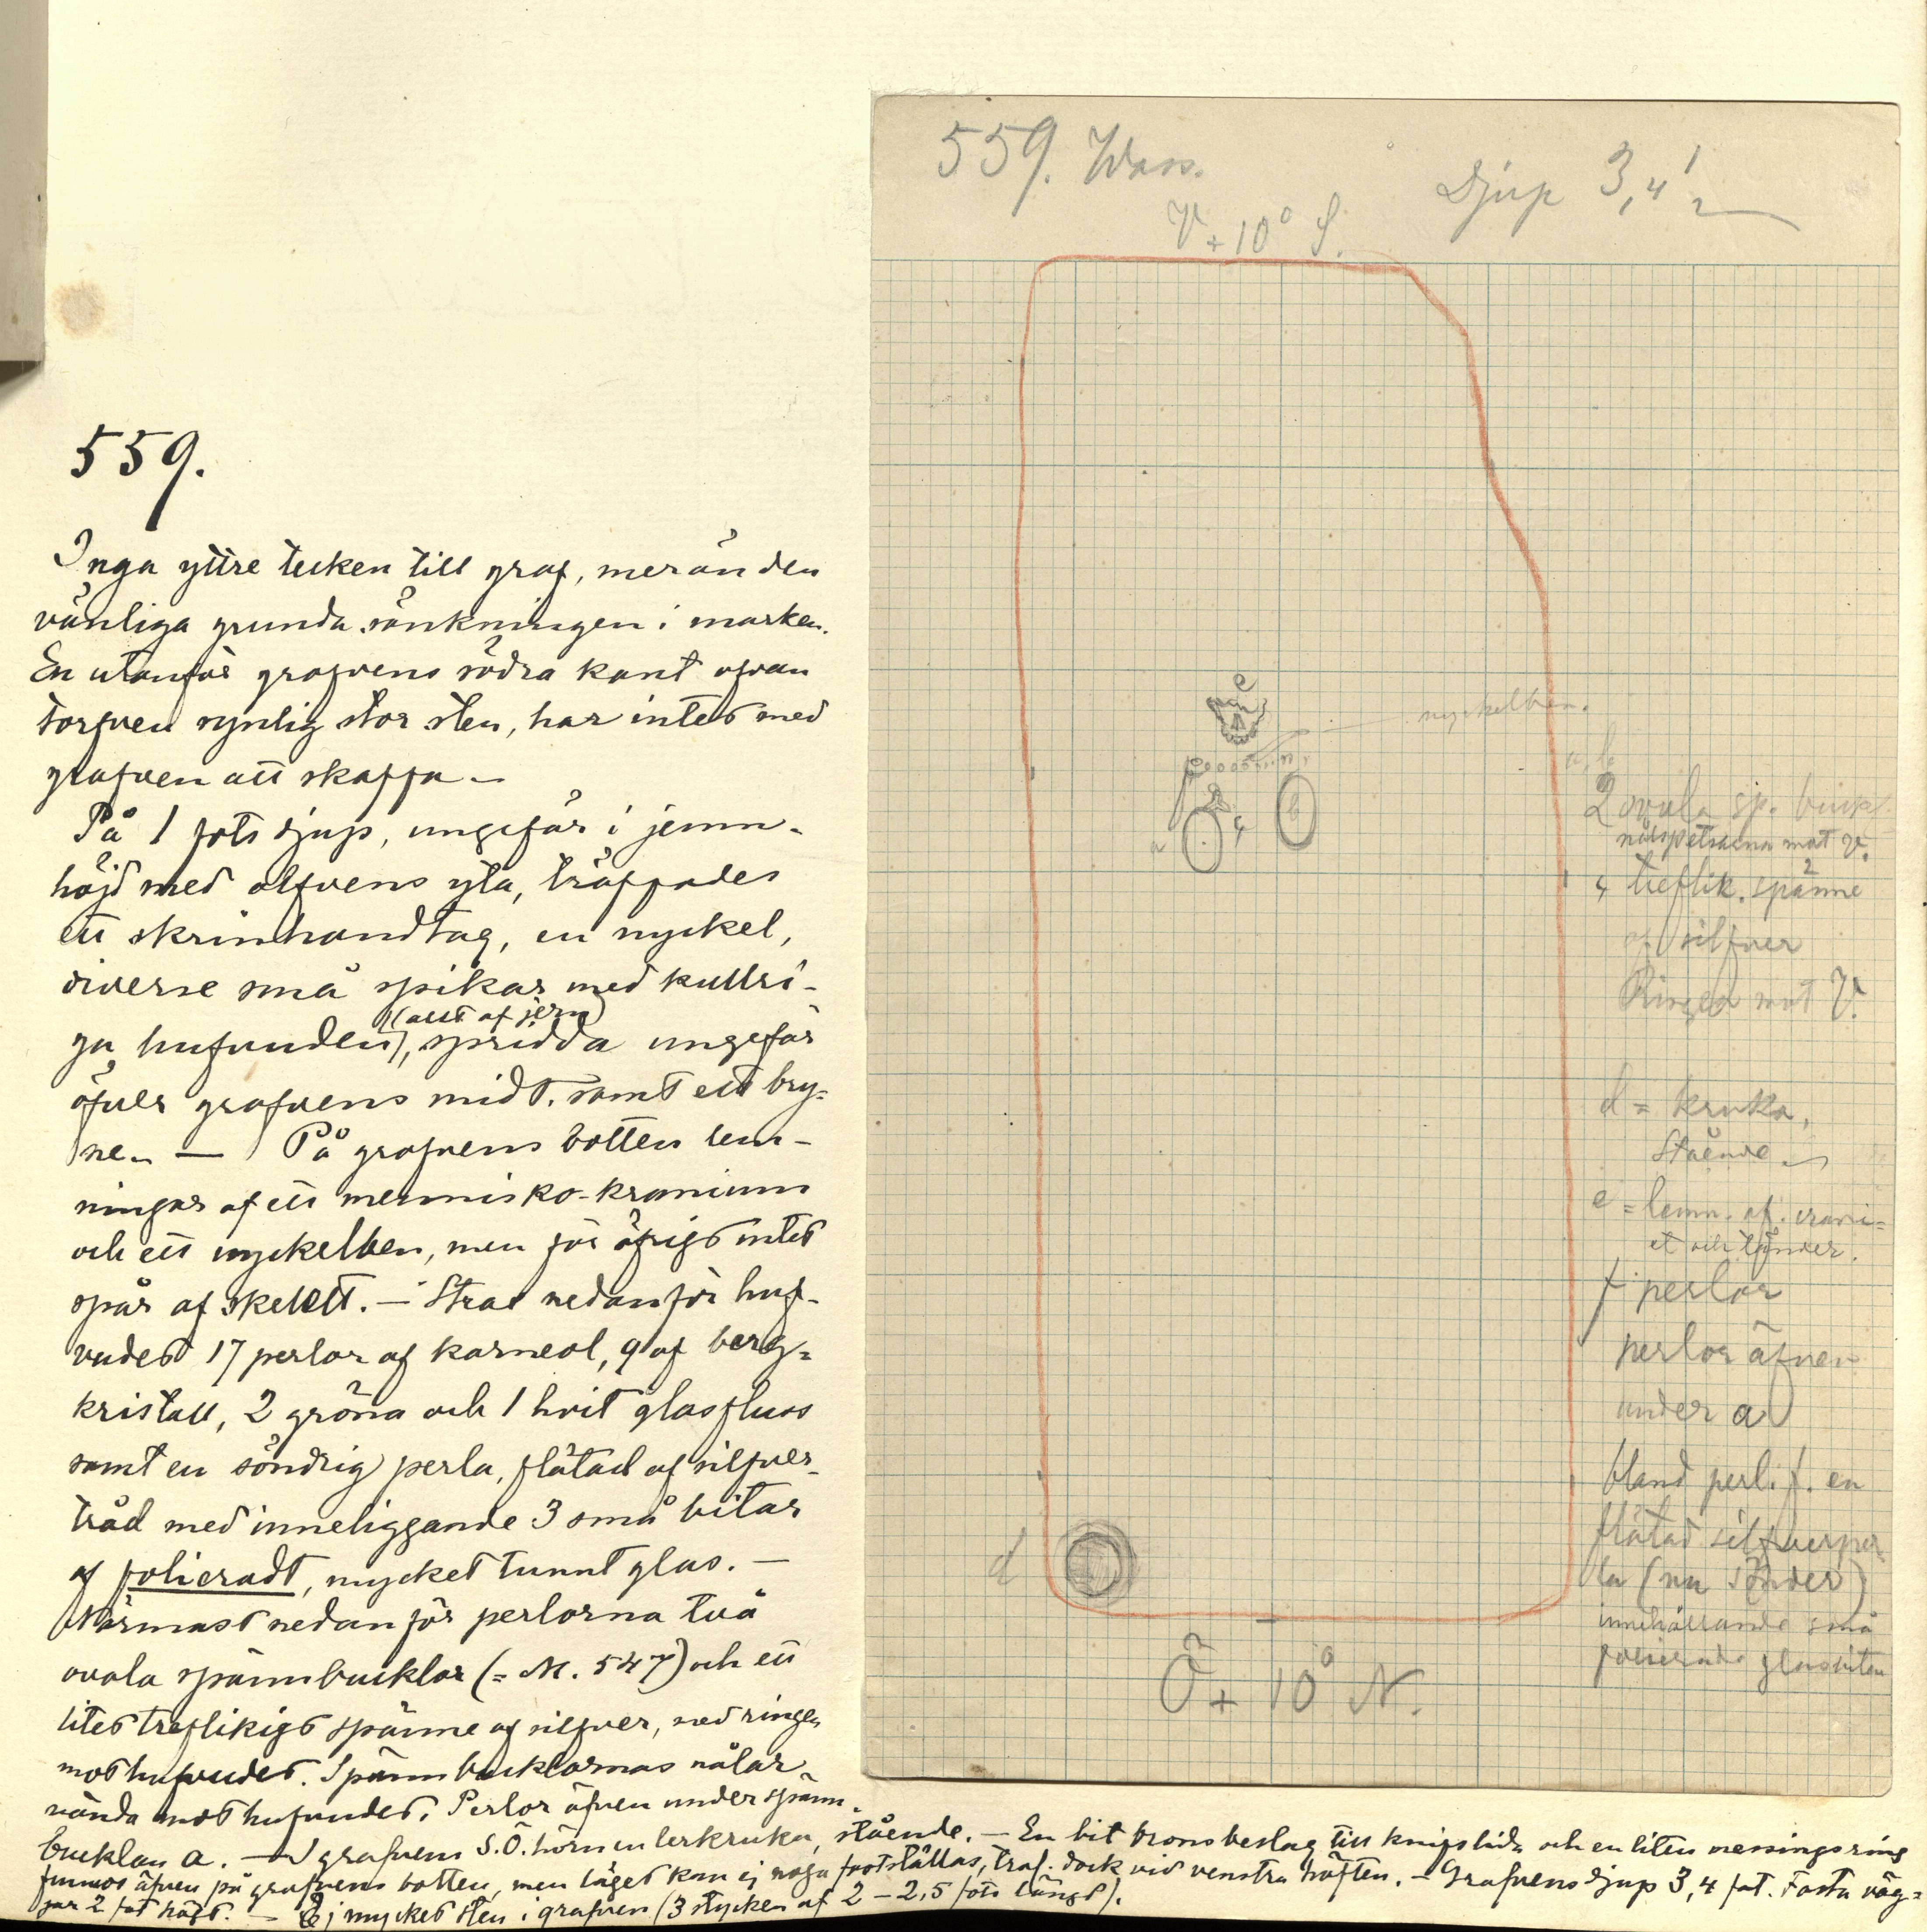 559.
Inga yttre tecken till graf, mer än den
vanliga grunda sänkningen i marken.
En utanför grafvens södra kant ofvan
torfven synlig stor sten, har intet med
grafven att skaffa.
På 1 fots djup, ungefär i jemn-
höjd med alfvens yta, träffades
ett skrinhandtag, en nyckel,
diverse små spikar med kullri-
(allt af jern)
ga hufvuden, spridda ungefär
öfver grafvens midt, samt ett bry-
ne. — På grafvens botten lem-
ningar af ett mennisko-kranium
och ett nyckelben, men för öfrigt intet
spår af skelett. — Strax nedanför huf-
vudet 17 perlor af karneol, 9 af berg-
kristall, 2 gröna och 1 hvit glasfluss
samt en söndrig perla, flätad af silfver-
tråd med inneliggande 3 små bitar
af folieradt, mycket tunnt glas. —
Närmast nedanför perlorna två
ovala spännbucklor (= M. 547) och ett
litet treflikigt spänne af silfver, med ringen
mot hufvudet. Spännbucklornas nålar
vända mot hufvudet. Perlor äfven under spänn-
bucklan a. — I grafvens S.Ö. hörn en lerkruka, stående. — En bit bronsbeslag till knifslida och en liten messingsring
funnos äfven på grafvens botten, men läget kan ej noga fastställas, traf. dock vid venstra höften. — Grafvens djup 3,4 fot. Fasta väg-
gar 2 fot högt. — Ej mycket sten i grafven (3 stycken af 2 – 2,5 fots längd).
559. Wass.
Djup 3,4'
V + 10° S.
e
nyckelben.
f
a
b
c
a, b
2 ovala sp. buckl.
nålspetsarna mot V.
c treflik. spänne
af silfver
Ringen mot V.
d = kruka,
stående
e = lemn. af crani-
et och tänder.
f perlor
perlor äfven
under a
bland perl. f. en
flätad silfverper
la (nu sönder)
innehållande små
folierade glasbitar
d
Ö + 10° N.